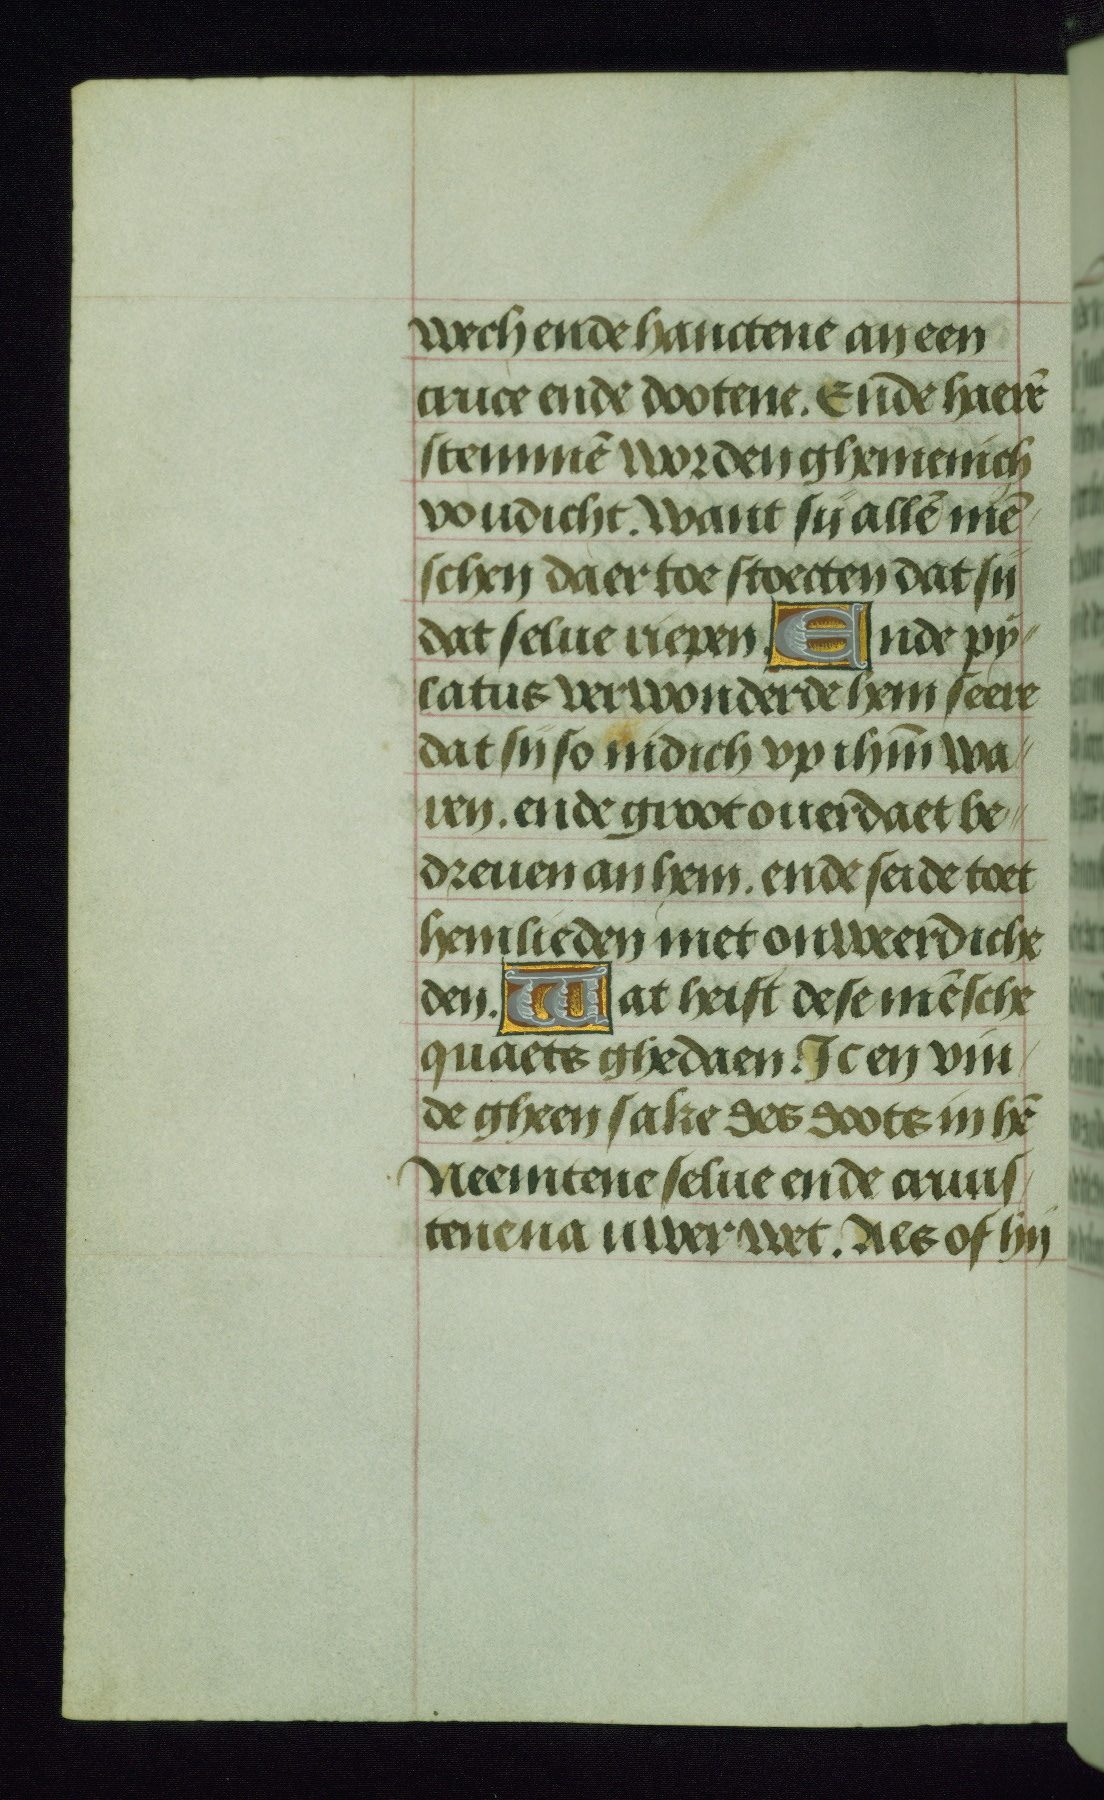 wech ende hanctene an een
cruce ende dootene. Ende haerē
stemmē worden ghemenich
voudicht. Want sij allē mē
schen daer toe stoecten dat sij
dat selue riepen. Ende py
latus verwonderde hem seere
dat sij so nidich vp ihm̄ wa
ren. ende groot ouerdaet be
dreuen an hem. ende seide toet
hemlieden met onweerdiche
den. Wat heift dese mēsche
quaets ghedaen. Ic en vin
de gheen sake des doots in hē
Neemtene selue ende cruus
tene na uwer wet. Als of hij